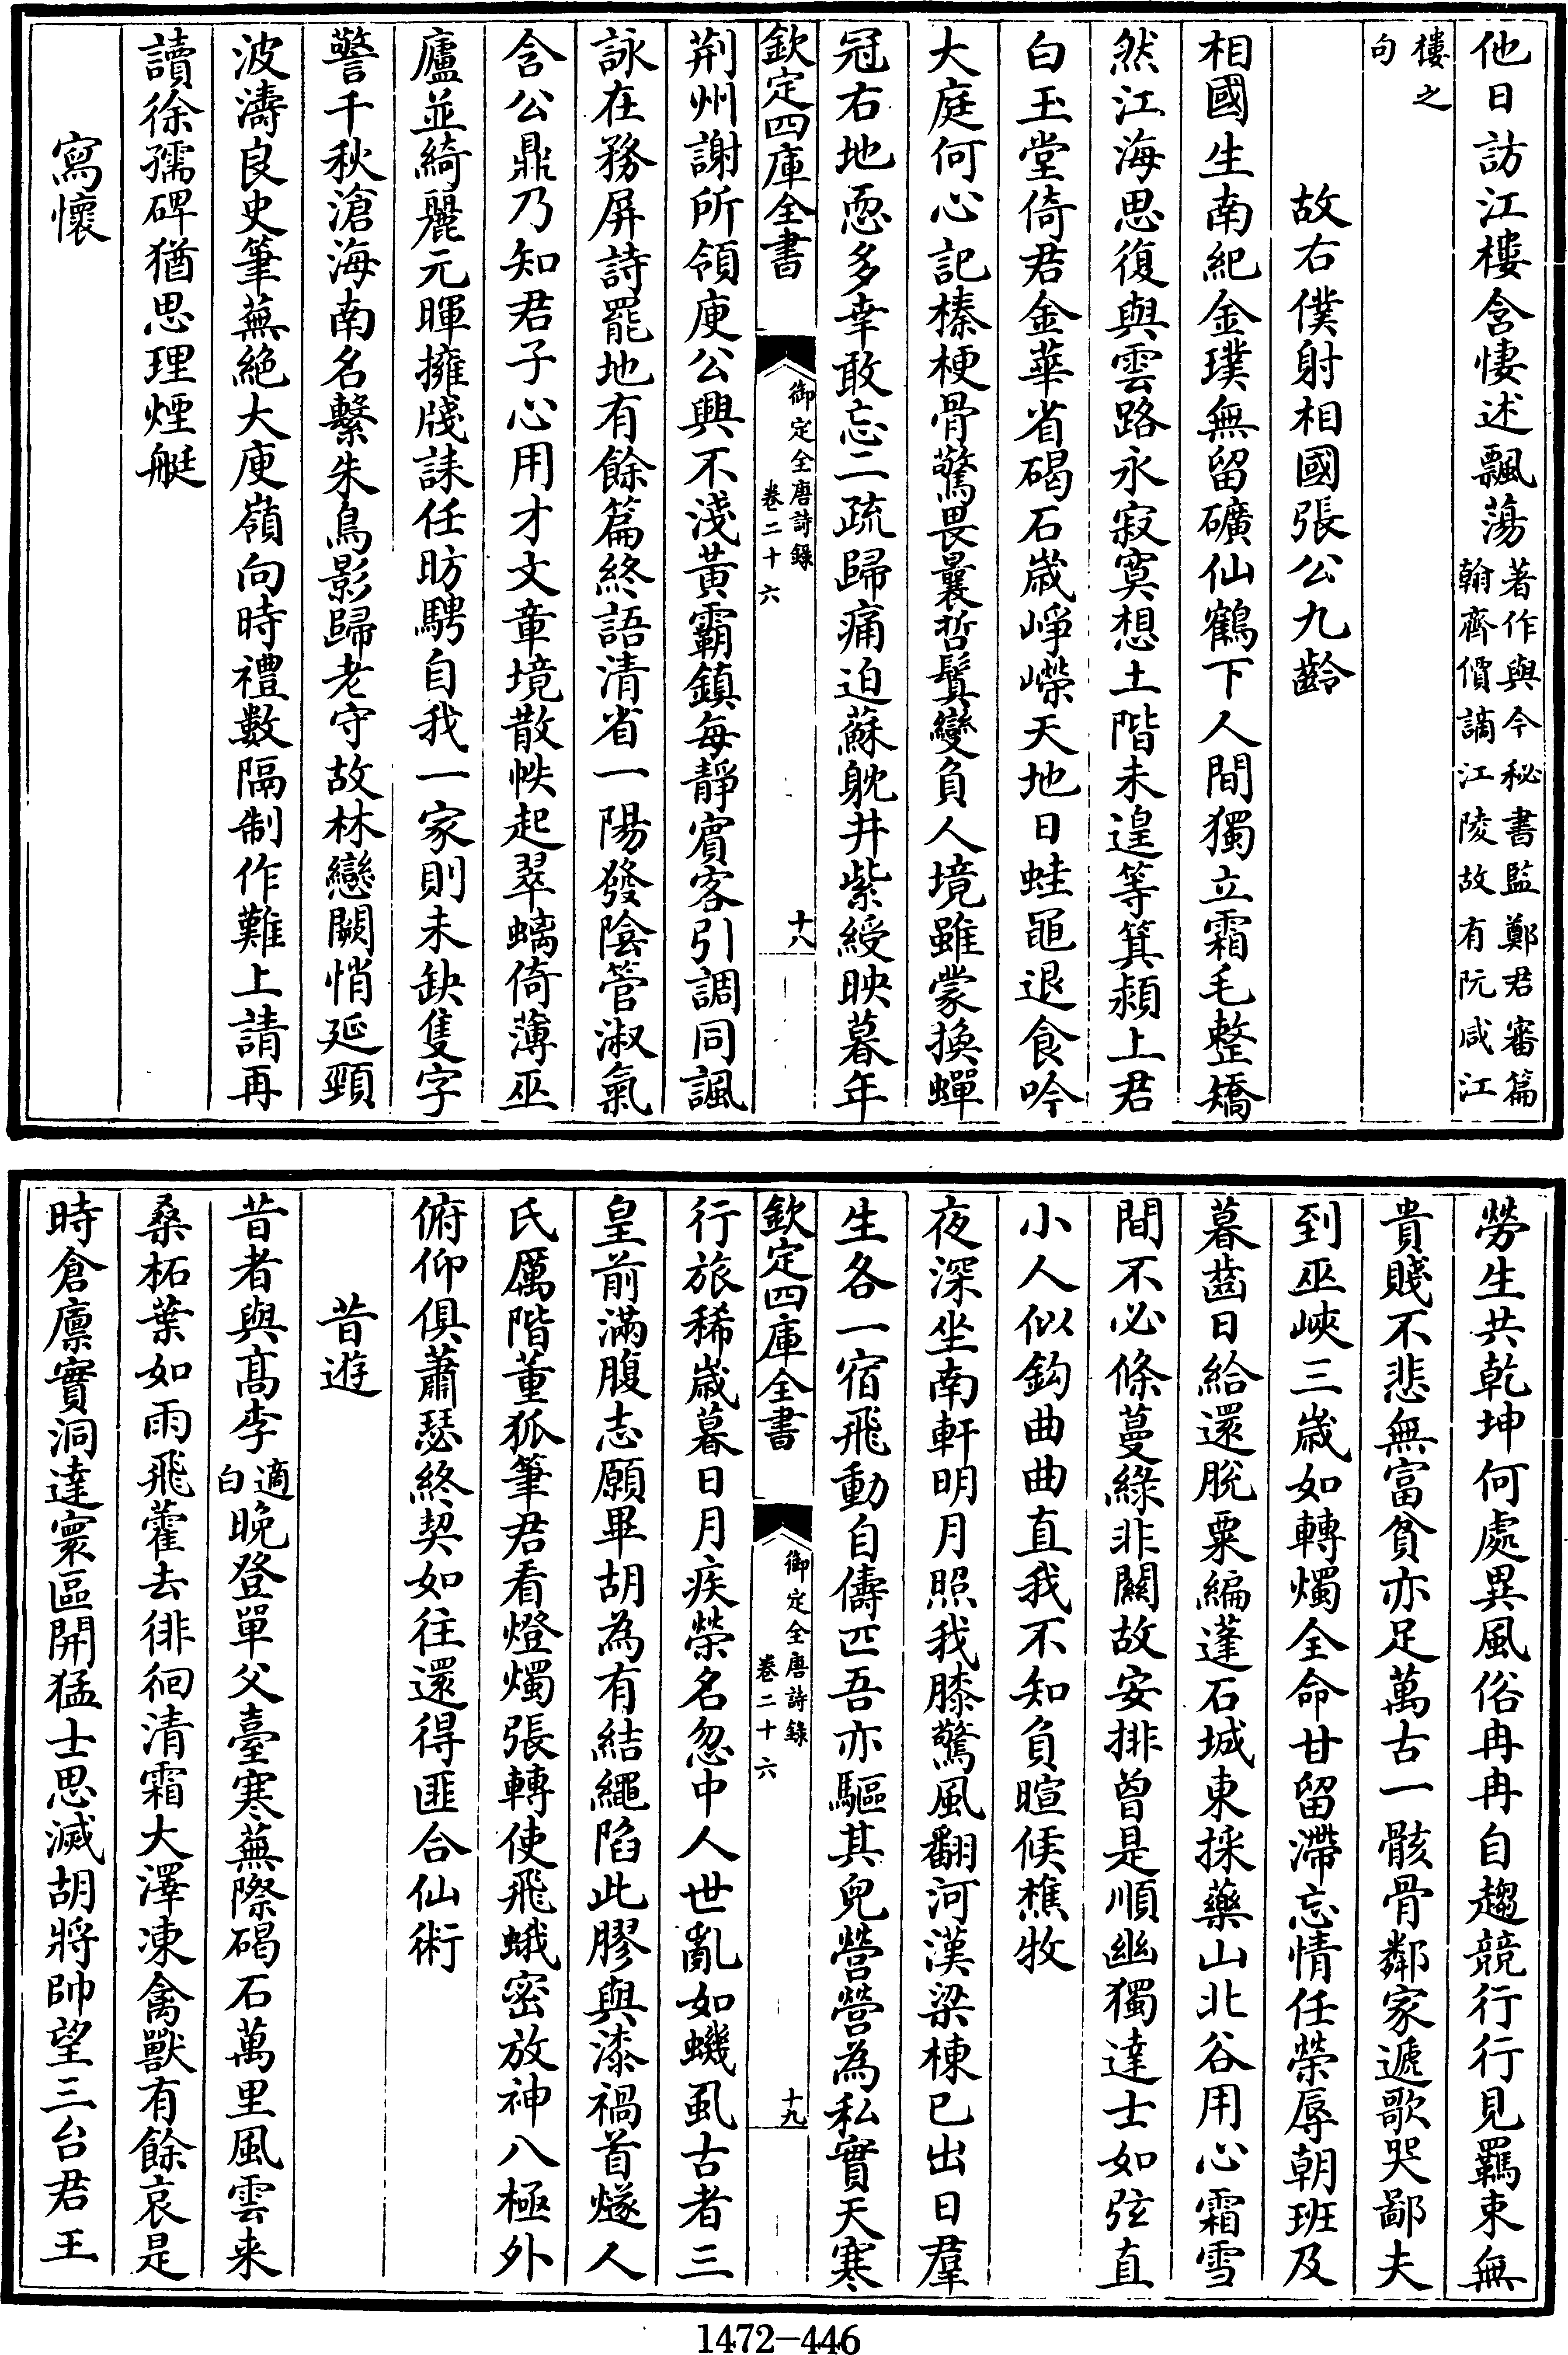 他日訪江樓含悽述飄蕩著作與今秘書監鄭君審篇翰齊價謫江陵故有阮咸江
樓之句
故右僕射相國張公九齡
相國生南紀金璞無留礦仙鶴下人間獨立霜毛整矯
然江海思復與雲路永寂寞想土階未遑等箕潁上君
白玉堂倚君金華省碣石嵗崢嶸天地日蛙黽退食吟
大庭何心記榛梗骨驚畏曩哲鬒變負人境雖蒙換蟬
冠右地恧多幸敢忘二疏歸痛迫蘇躭井紫綬映暮年
欽定四庫全書 御定全唐詩錄 卷二十六 十八
荆州謝所領庾公興不淺黃霸鎮每靜賓客引調同諷
詠在務屏詩罷地有餘篇終語清省一陽發陰管淑氣
含公鼎乃知君子心用才文章境散帙起翠螭倚薄巫
廬並綺麗元暉擁牋誄任昉騁自我一家則未缺隻字
警千秋滄海南名繫朱鳥影歸老守故林戀闕悄延頸
波濤良史筆蕪絶大庾嶺向時禮數隔制作難上請再
讀徐孺碑猶思理煙艇
寫懷
勞生共乾坤何處異風俗冉冉自趨競行行見羈束無
貴賤不悲無富貧亦足萬古一骸骨鄰家遞歌哭鄙夫
到巫峽三嵗如轉燭全命甘留滯忘情任榮辱朝班及
暮齒日給還脫粟編蓬石城東採藥山北谷用心霜雪
間不必條蔓綠非關故安排曾是順幽獨達士如弦直
小人似鈎曲曲直我不知負暄候樵牧
夜深坐南軒明月照我膝驚風翻河漢梁棟已出日羣
生各一宿飛動自儔匹吾亦驅其兒營營為私實天寒
欽定四庫全書 御定全唐詩錄 卷二十六 十九
行旅稀嵗暮日月疾榮名忽中人世亂如蟣虱古者三
皇前滿腹志願畢胡為有結繩陷此膠與漆禍首燧人
氏厲階董狐筆君看燈燭張轉使飛蛾密放神八極外
俯仰俱蕭瑟終契如往還得匪合仙術
昔遊
昔者與髙李適白晚登單父臺寒蕪際碣石萬里風雲来
桑柘葉如雨飛藿去徘徊清霜大澤凍禽獸有餘哀是
時倉廪實洞達寰區開猛士思滅胡將帥望三台君王
1472-446